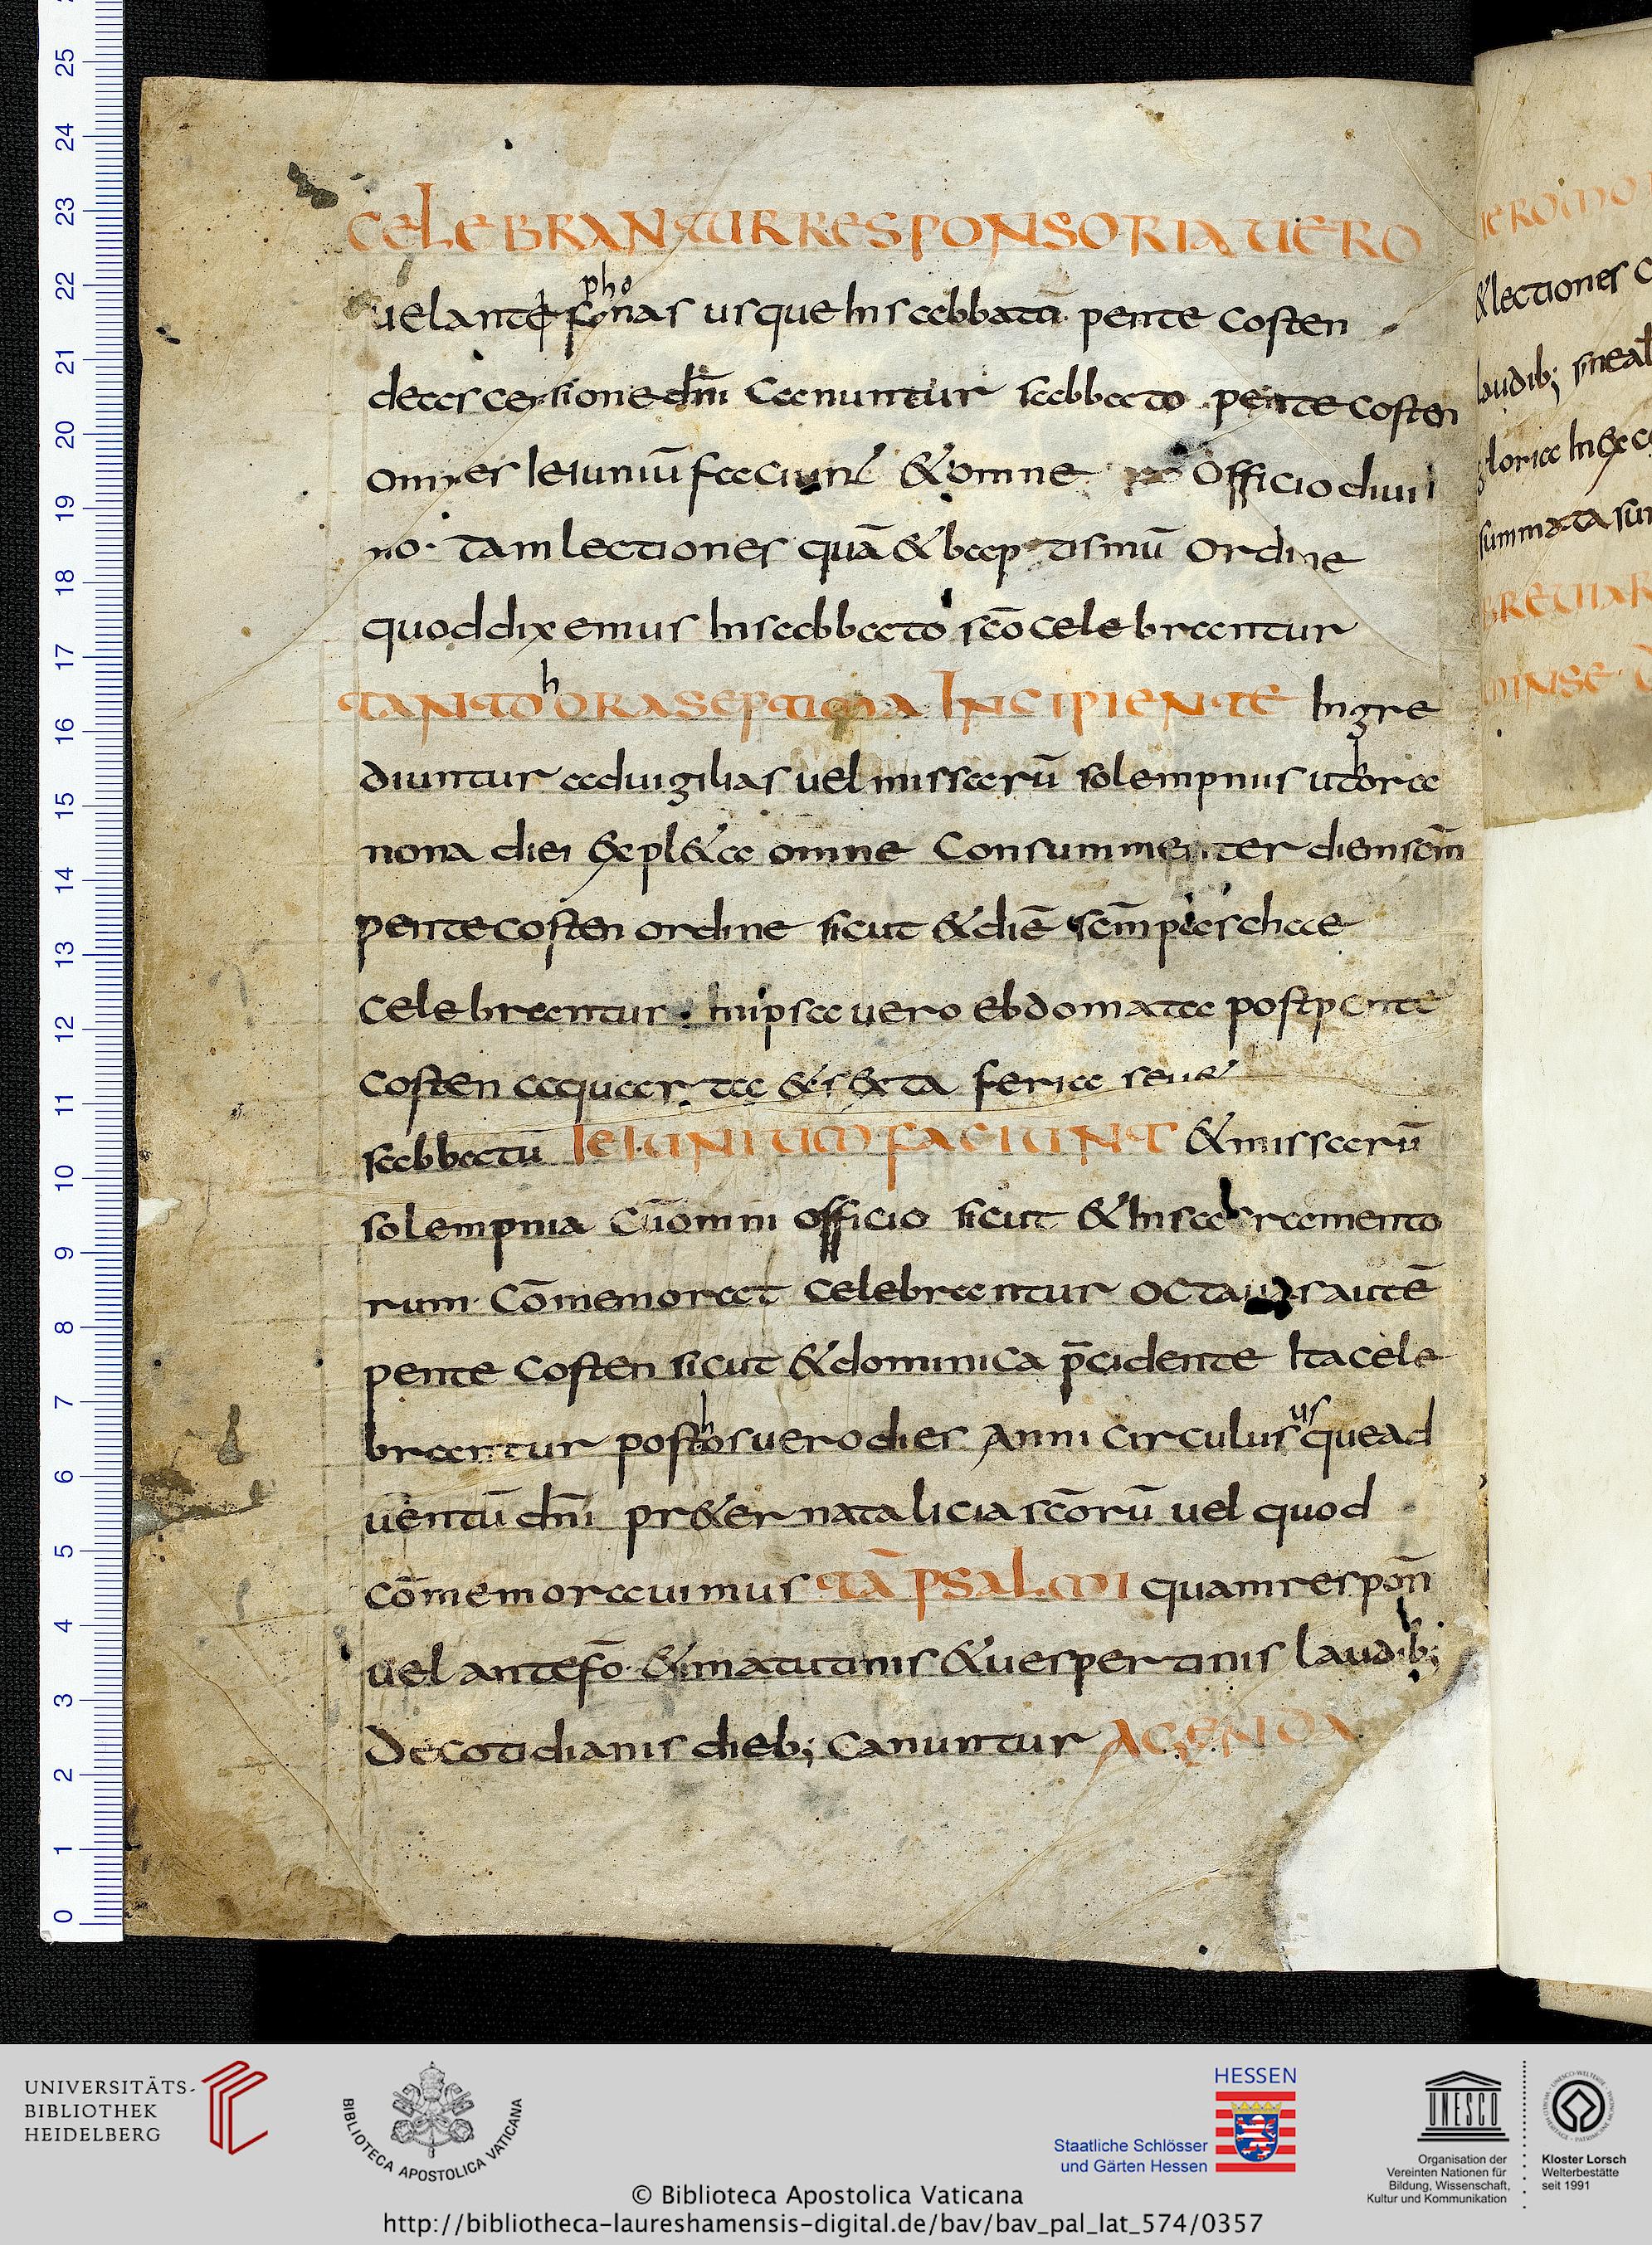 CELEBRANTUR RESPONSORIA UERO
uel antefonas usque In sabbatū pente costen
pho
de ascensione dn̄i Canuntur sabbato pente costen
omnes Ieiuniū faciunt & omne officio diui
no· tam lectiones quā & baptismū Ordine
quod dixemus In sabbato sc̄o celebrantur
TANTO hORA SEPTIMA INCIPIENTE Ingre
diuntur ad uigilias uel missarū solempniis ut hora
nona diei expl&a omne Consummenter diem sc̄m
pentecosten ordine sicut & diē sc̄m paschae
Celebrantur · In ipsa uero ebdomata post pente
Costen quarta & sexta feria seu &
sabbatū IEIUNIUM FACIUNT & missarū
solempnia Cū omni officio sicut & In sacramento
rum Cōmemorat Celebrantur OCtauas autē
pente Costen sicut & dominica p̄cidente Ita cele
brantur post hos uero dies Anni Circulus usque ad
uentū dn̄i pr&er natalicia sc̄orū uel quod
Cōmemorauimus TĀ PSALMI quam respon̄
uel antefō· & matutinis & uespertinis laudib;
De cotidianis dieb; Canuntur AGENDA
IEROMO
& lectiones
laudib;
gloria In
summata sun
BREUIAR
25
24
23
22
21
20
19
18
17
16
15
14
13
12
11
10
9
8
7
6
5
4
3
2
1
0
UNIVERSITÄTS-
BIBLIOTHEK
HEIDELBERG
BIBLIOTECA APOSTOLICA VATICANA
HESSEN
Staatliche Schlösser
und Gärten Hessen
UNESCO
Organisation der
Vereinten Nationen für
Bildung, Wissenschaft,
Kultur und Kommunikation
Kloster Lorsch
Welterbestätte
seit 1991
© Biblioteca Apostolica Vaticana
http://bibliotheca-laureshamensis-digital.de/bav/bav_pal_lat_574/0357